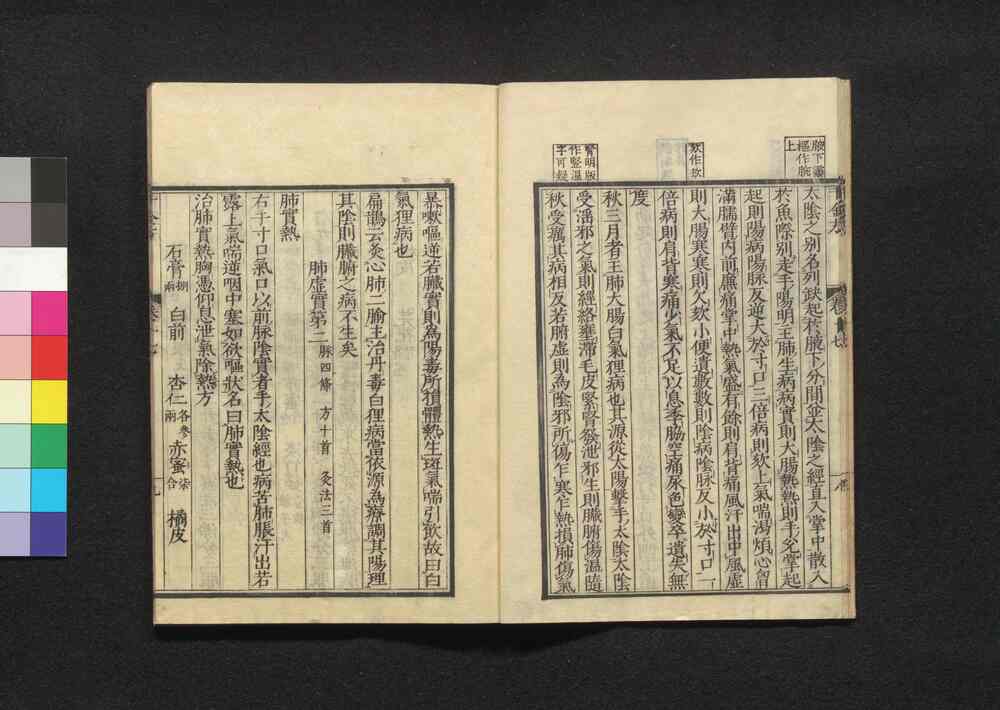 腋下
上
欬作欬
腎明版
作堅溫
太陰之別名列缺起於腋下分間並太陰之經直入掌中散入
於魚際別走手陽明主肺生病病實則大腸熱熱則手兌掌起
起則陽病陽脉反逆大於寸口三倍病則欬上氣喘渴煩心胷
滿臑臂內前廉痛掌中熱氣盛有餘則肩背痛風汗出中風虛
則大腸寒寒則欠欬小便遺數數則陰病陰脉反小於寸口一
倍病則肩背寒痛少氣不足以息季脇空痛尿色變卒遺失無
度
秋三月者主肺大腸白氣狸病也其源從太陽擊手太陰太陰
受淫邪之氣則經絡壅滯毛皮緊腎發泄邪生則臟腑傷溫隨
秋受癘其病相反若腑虛則為陰邪所傷乍寒乍熱損肺傷氣
暴嗽嘔逆若臟實則為陽毒所損體熱生斑氣喘引飲故曰白
氣狸病也
扁鵲云灸心肺二腧主治丹毒白狸病當依源為療調其陽理
其陰則臟腑之病不生矣
肺虛實第二 脉四條 方十首 灸法三首
肺實熱
右手寸口氣口以前脉陰實者手太陰經也病苦肺脹汗出若
露上氣喘逆咽中塞如欲嘔狀名曰肺實熱也
治肺實熱胷憑仰息泄氣除熱方
石膏捌兩 白前 杏仁各參兩 赤蜜柒合 橘皮